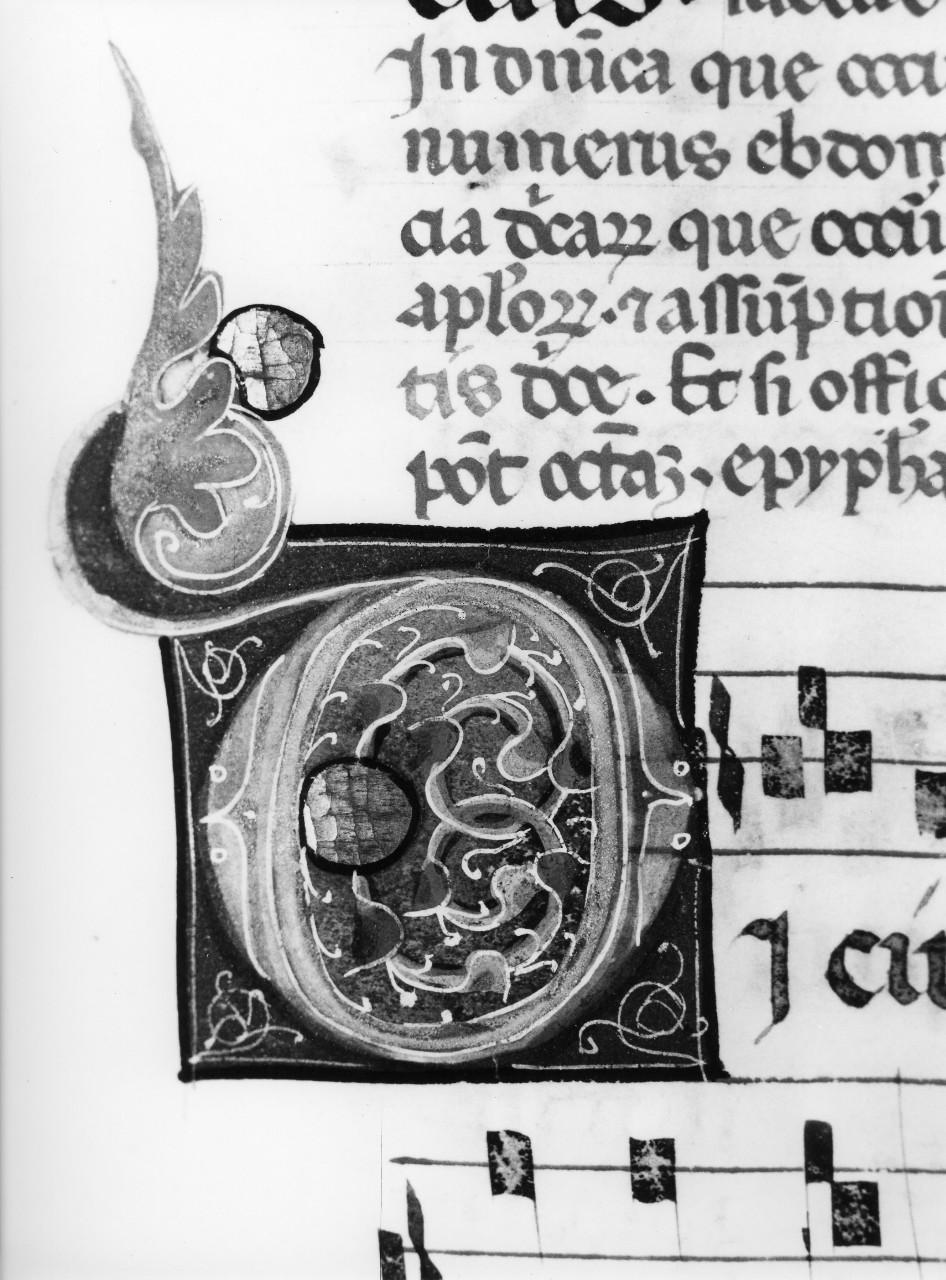 In dnīca que occu
numerus ebdom
cia dcaꝝ que occū
aploꝝ · ⁊ assūption
tis dce · Et si offic
pōt octaꝫ · epypha
D
I cū